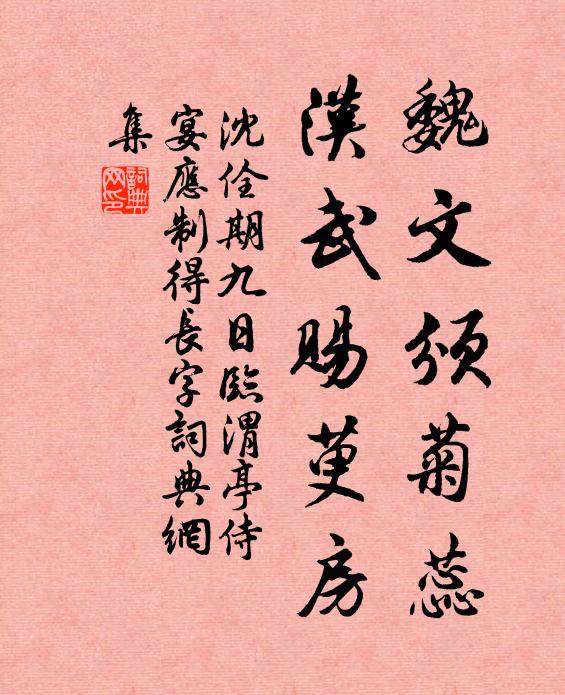 魏文頒菊蕊
漢武賜萸房
沈佺期九日臨渭亭侍
宴應制得長字詞典網
集
詞典网印